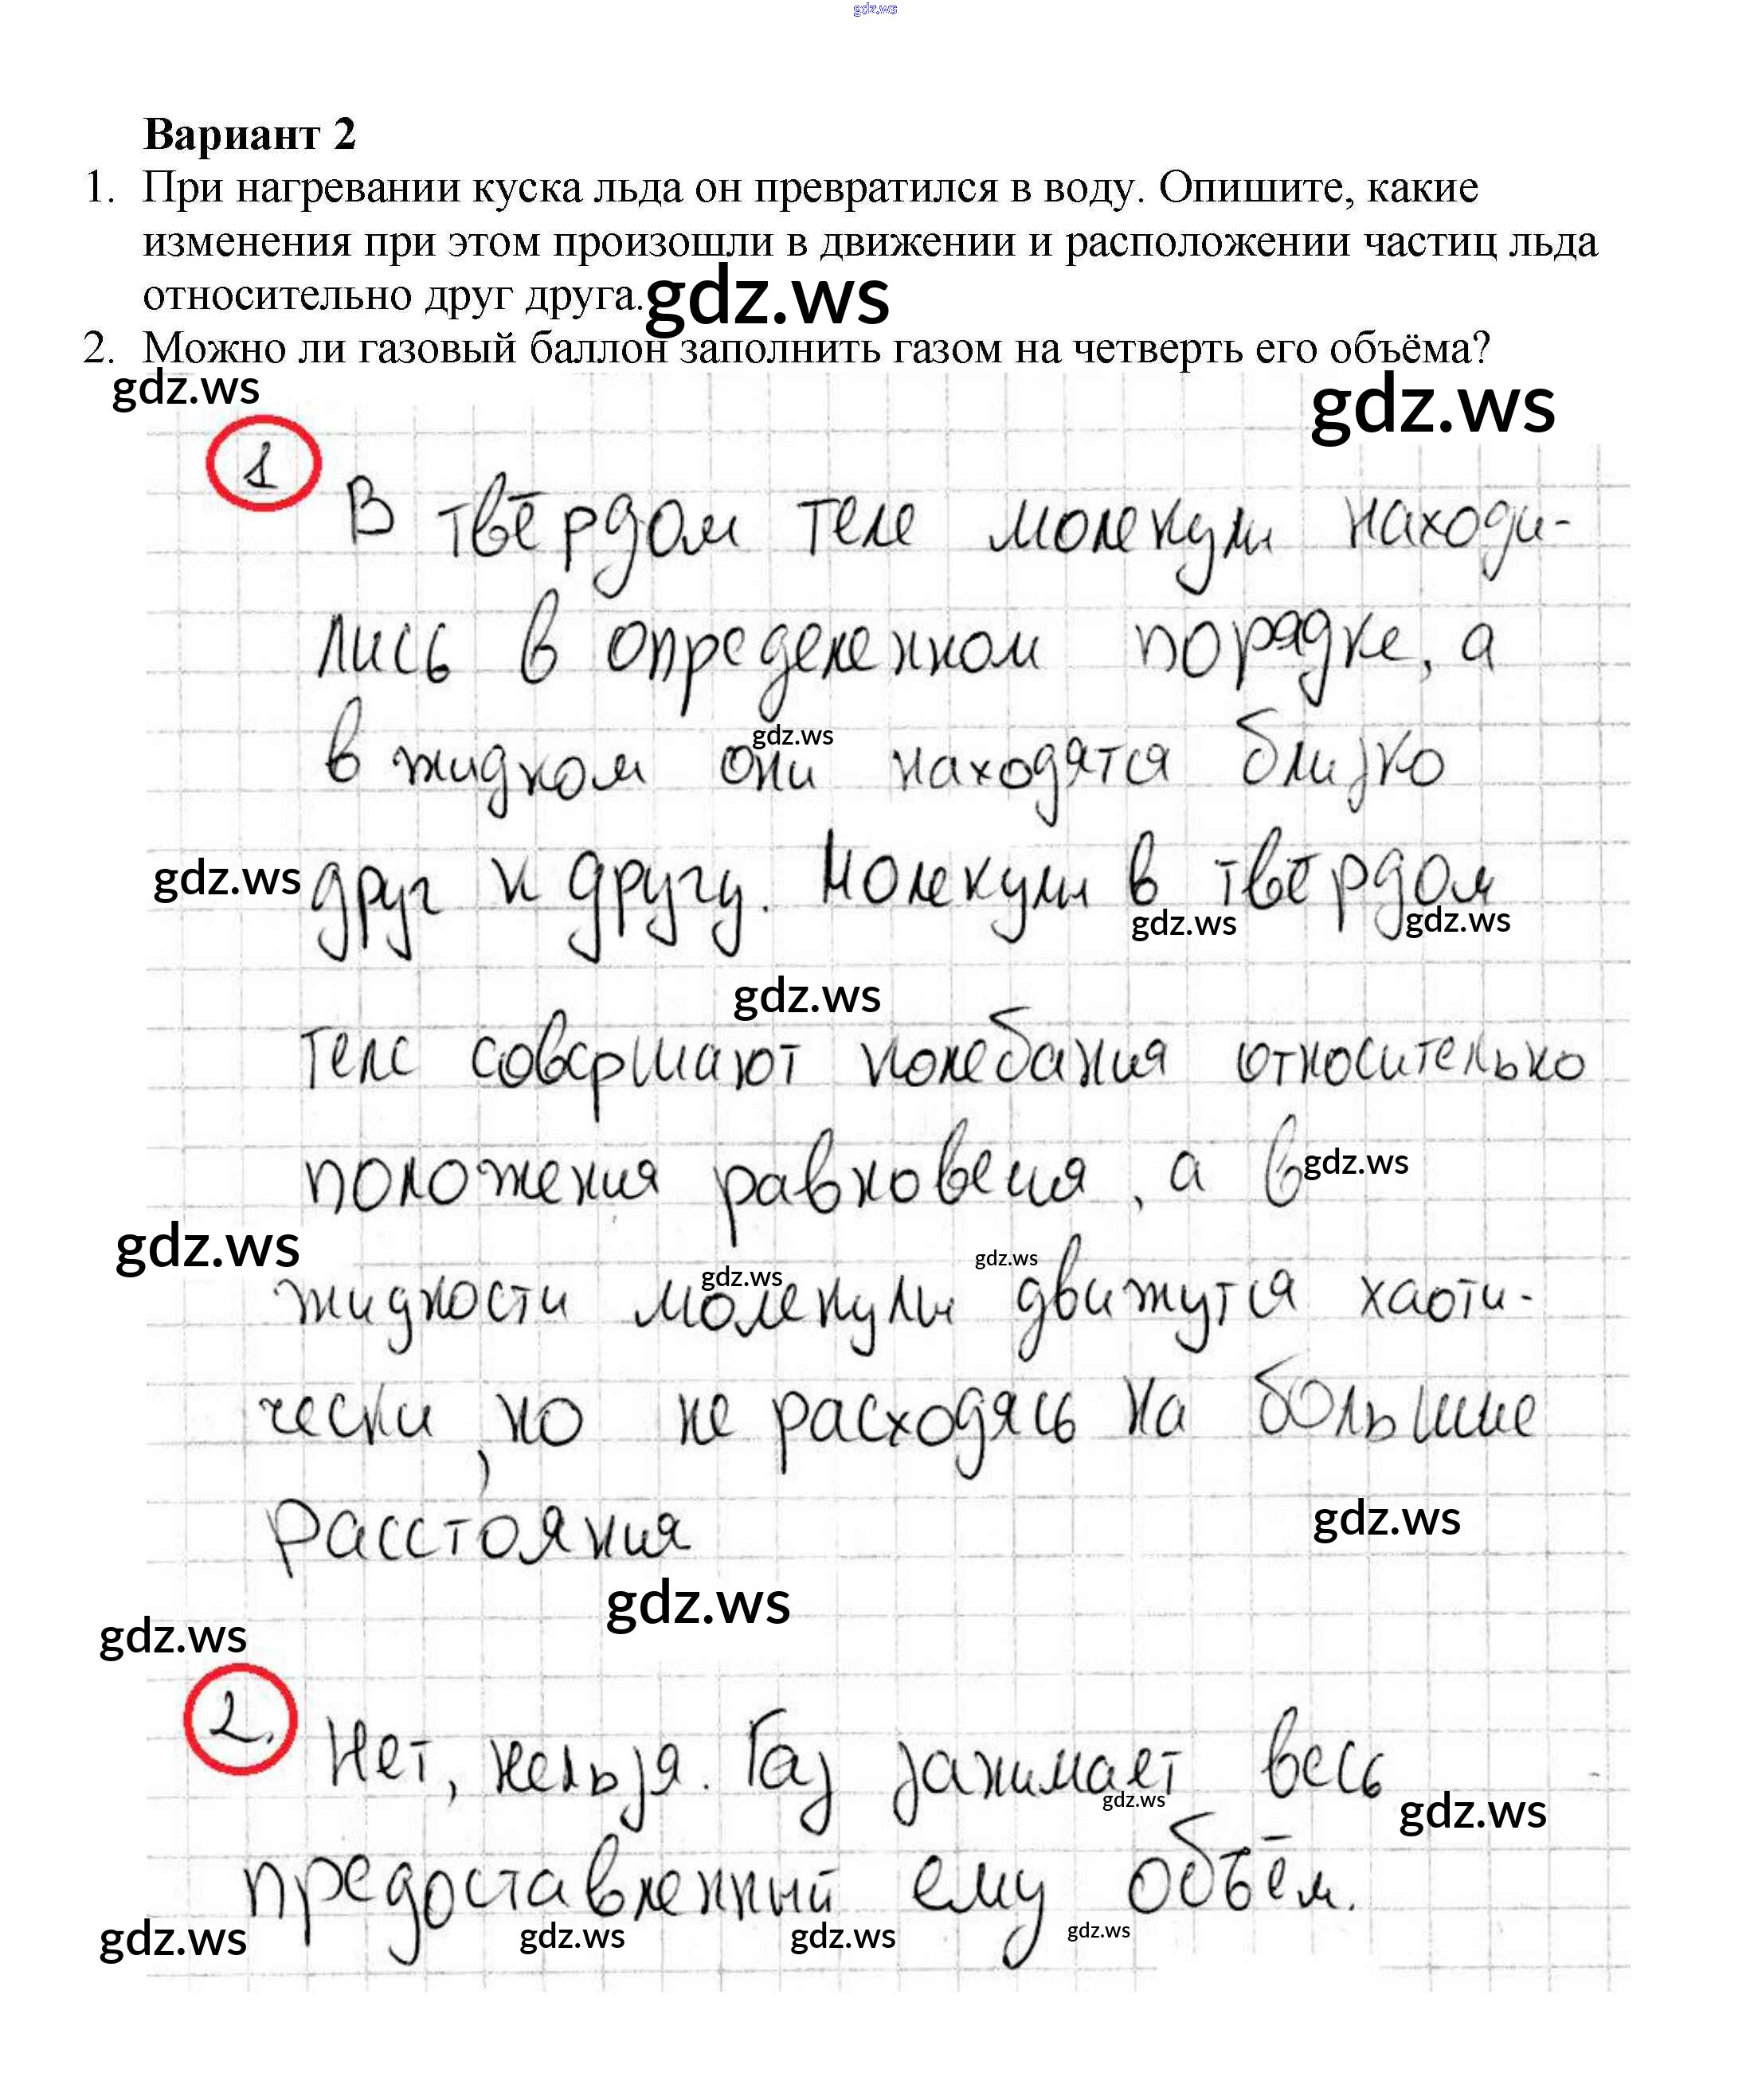 gdz.ws
Вариант 2
1. При нагревании куска льда он превратился в воду. Опишите, какие
изменения при этом произошли в движении и расположении частиц льда
относительно друг друга. gdz.ws
2. Можно ли газовый баллон заполнить газом на четверть его объёма?
gdz.ws
gdz.ws
1 В твёрдом теле молекулы находи-
лись в определенном порядке, а
gdz.ws
в жидком они находятся близко
gdz.ws друг к другу. Молекулы в твёрдом
gdz.ws gdz.ws
gdz.ws
теле совершают колебания относительно
положения равновесия, а в gdz.ws
gdz.ws
gdz.ws gdz.ws
жидкости молекулы движутся хаоти-
чески, но не расходясь на большие
расстояния
gdz.ws
gdz.ws
gdz.ws
2. Нет, нельзя. Газ занимает весь
gdz.ws gdz.ws
предоставленный ему объём.
gdz.ws gdz.ws gdz.ws gdz.ws